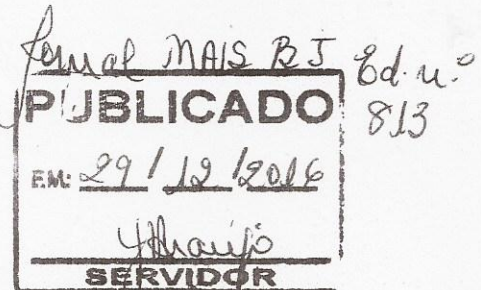 Jornal MAIS BJ Ed. n.º
813
PUBLICADO
EM: 29/12/2016
YAraújo
SERVIDOR